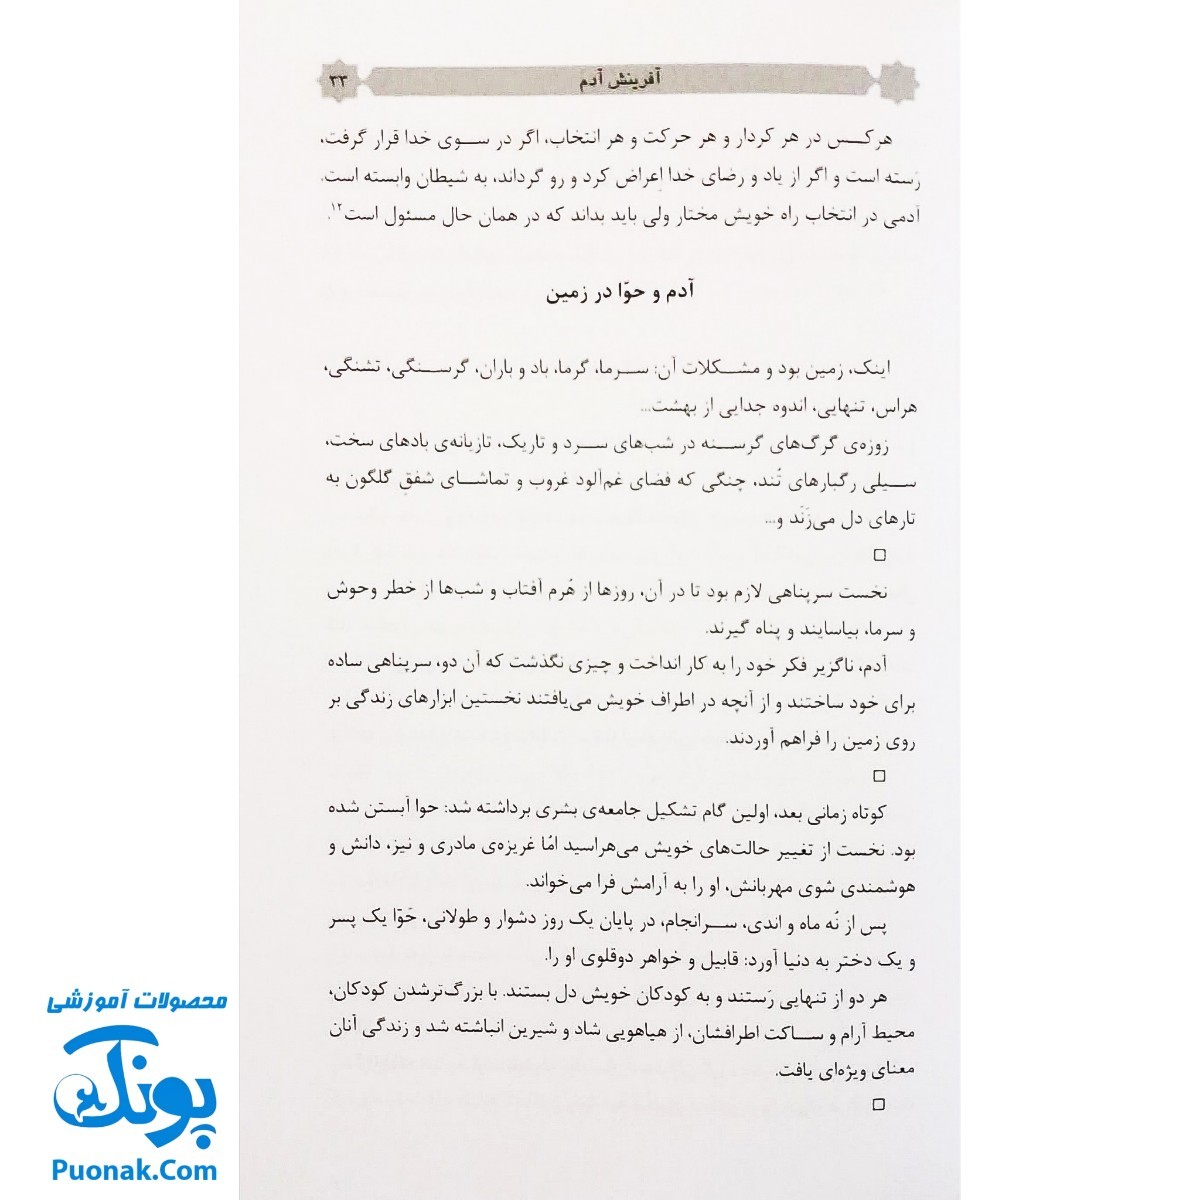 آفرینش آدم
۳۳
هرکس در هر کردار و هر حرکت و هر انتخاب، اگر در سوی خدا قرار گرفت،
رَسته است و اگر از یاد و رضای خدا اِعراض کرد و رو گرداند، به شیطان وابسته است.
آدمی در انتخاب راه خویش مختار ولی باید بداند که در همان حال مسئول است۱۲.
آدم و حوّا در زمین
اینک، زمین بود و مشکلات آن: سرما، گرما، باد و باران، گرسنگی، تشنگی،
هراس، تنهایی، اندوه جدایی از بهشت...
زوزه‌ی گرگ‌های گرسنه در شب‌های سرد و تاریک، تازیانه‌ی بادهای سخت،
سیلی رگبارهای تُند، چنگی که فضای غم‌آلود غروب و تماشای شفقِ گلگون به
تارهای دل می‌زَنَد و...
□
نخست سرپناهی لازم بود تا در آن، روزها از هُرم آفتاب و شب‌ها از خطر وحوش
و سرما، بیاسایند و پناه گیرند.
آدم، ناگزیر فکر خود را به کار انداخت و چیزی نگذشت که آن دو، سرپناهی ساده
برای خود ساختند و از آنچه در اطراف خویش می‌یافتند نخستین ابزارهای زندگی بر
روی زمین را فراهم آوردند.
□
کوتاه زمانی بعد، اولین گام تشکیل جامعه‌ی بشری برداشته شد: حوا آبستن شده
بود. نخست از تغییر حالت‌های خویش می‌هراسید امّا غریزه‌ی مادری و نیز، دانش و
هوشمندی شوی مهربانش، او را به آرامش فرا می‌خواند.
پس از نُه ماه و اندی، سرانجام، در پایان یک روز دشوار و طولانی، حَوّا یک پسر
و یک دختر به دنیا آورد: قابیل و خواهر دوقلوی او را.
هر دو از تنهایی رَستند و به کودکان خویش دل بستند. با بزرگ‌ترشدن کودکان،
محیط آرام و ساکت اطرافشان، از هیاهویی شاد و شیرین انباشته شد و زندگی آنان
معنای ویژه‌ای یافت.
□
محصولات آموزشی
پونک
Puonak.Com